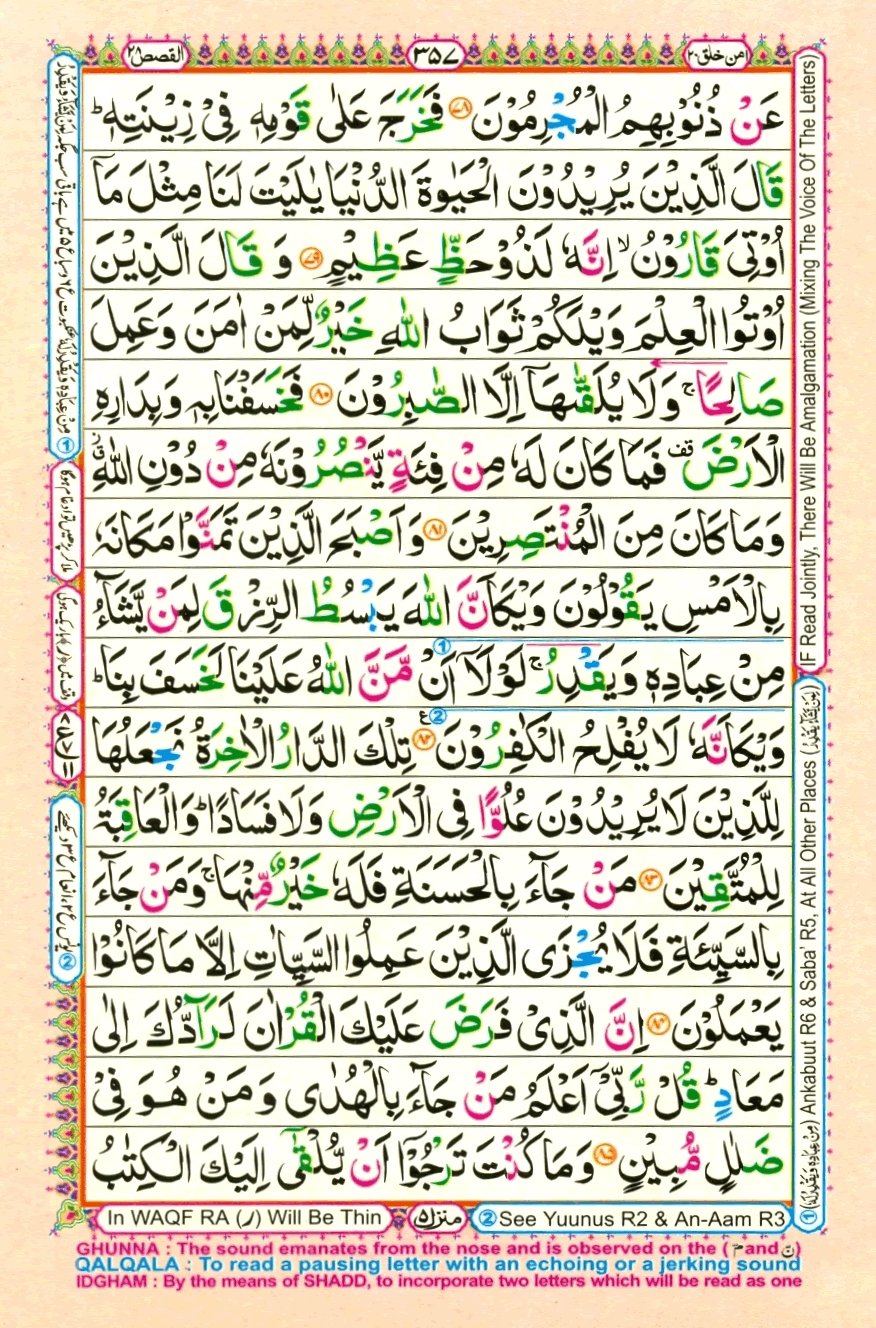 امن خلق ٢٠
٣٥٧
القصص ٢٨
عَنْ ذُنُوْبِهِمُ الْمُجْرِمُوْنَ ﴿٧٨﴾ فَخَرَجَ عَلٰى قَوْمِهٖ فِىْ زِيْنَتِهٖ ؕ
قَالَ الَّذِيْنَ يُرِيْدُوْنَ الْحَيٰوةَ الدُّنْيَا يٰلَيْتَ لَنَا مِثْلَ مَاۤ
اُوْتِىَ قَارُوْنُ ۙ اِنَّهٗ لَذُوْ حَظٍّ عَظِيْمٍ ﴿٧٩﴾ وَ قَالَ الَّذِيْنَ
اُوْتُوا الْعِلْمَ وَيْلَكُمْ ثَوَابُ اللّٰهِ خَيْرٌ لِّمَنْ اٰمَنَ وَعَمِلَ
صَالِحًا ۚ وَلَا يُلَقّٰٮهَاۤ اِلَّا الصّٰبِرُوْنَ ﴿٨٠﴾ فَخَسَفْنَا بِهٖ وَبِدَارِهِ
الْاَرْضَ قف فَمَا كَانَ لَهٗ مِنْ فِئَةٍ يَّنْصُرُوْنَهٗ مِنْ دُوْنِ اللّٰهِ ق
وَمَا كَانَ مِنَ الْمُنْتَصِرِيْنَ ﴿٨١﴾ وَاَصْبَحَ الَّذِيْنَ تَمَنَّوْا مَكَانَهٗ
بِالْاَمْسِ يَقُوْلُوْنَ وَيْكَاَنَّ اللّٰهَ يَبْسُطُ الرِّزْقَ لِمَنْ يَّشَآءُ
مِنْ عِبَادِهٖ وَيَقْدِرُ ۚ لَوْلَاۤ اَنْ مَّنَّ اللّٰهُ عَلَيْنَا لَخَسَفَ بِنَا ؕ
وَيْكَاَنَّهٗ لَا يُفْلِحُ الْكٰفِرُوْنَ ﴿٨٢﴾ ع تِلْكَ الدَّارُ الْاٰخِرَةُ نَجْعَلُهَا
لِلَّذِيْنَ لَا يُرِيْدُوْنَ عُلُوًّا فِى الْاَرْضِ وَلَا فَسَادًا ؕ وَالْعَاقِبَةُ
لِلْمُتَّقِيْنَ ﴿٨٣﴾ مَنْ جَآءَ بِالْحَسَنَةِ فَلَهٗ خَيْرٌ مِّنْهَا ۚ وَمَنْ جَآءَ
بِالسَّيِّئَةِ فَلَا يُجْزَى الَّذِيْنَ عَمِلُوا السَّيِّاٰتِ اِلَّا مَا كَانُوْا
يَعْمَلُوْنَ ﴿٨٤﴾ اِنَّ الَّذِىْ فَرَضَ عَلَيْكَ الْقُرْاٰنَ لَرَآدُّكَ اِلٰى
مَعَادٍ ؕ قُلْ رَّبِّىْۤ اَعْلَمُ مَنْ جَآءَ بِالْهُدٰى وَ مَنْ هُوَ فِىْ
ضَلٰلٍ مُّبِيْنٍ ﴿٨٥﴾ وَمَا كُنْتَ تَرْجُوْۤا اَنْ يُّلْقٰٓى اِلَيْكَ الْكِتٰبُ
IF Read Jointly, There Will Be Amalgamation (Mixing The Voice Of The Letters)
① (مِنْ عِبَادِهٖ وَيَقْدِرُ لَهٗ) Ankabuut R6 & Saba' R5, At All Other Places (لِمَنْ يَّشَآءُ وَيَقْدِرُ)
ملا کر پڑھیں تو ادغام ہوگا
In WAQF RA (ر) Will Be Thin
منزل ٥
② See Yuunus R2 & An-Aam R3
GHUNNA : The sound emanates from the nose and is observed on the ( مّ and نّ )
QALQALA : To read a pausing letter with an echoing or a jerking sound
IDGHAM : By the means of SHADD, to incorporate two letters which will be read as one